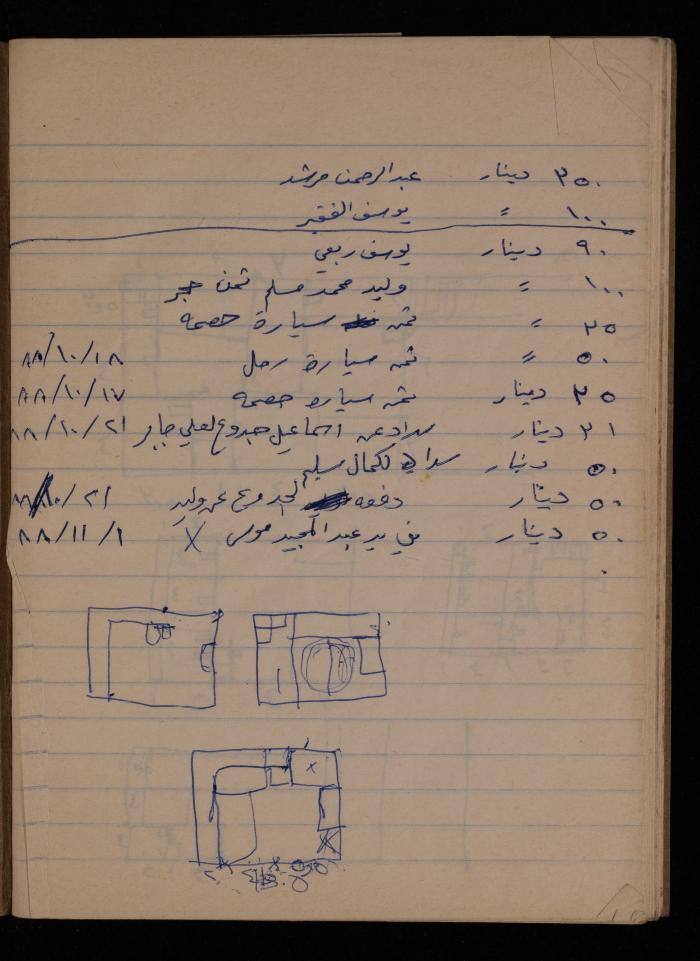 ٣٥٠ دينار عبد الرحمن مرشد
١٠٠ = يوسف الفقير
٩٠ دينار يوسف ربعي
١٠٠ = وليد محمد مسلم ثمن حجر
٣٥ = ثمن سيارة حصمه
٥٠ = ثمن سيارة رمل ٨٨/١٠/١٨
٣٥ دينار ثمن سياره حصمه ٨٨/١٠/١٧
٣١ دينار سداد عن اسماعيل جدوع لعلي جابر ٨٨/١٠/٢١
٥٠ دينار سداد لكمال سليم
٥٠ دينار دفعه الجدوع عن وليد ١٠/٢١
٥٠ دينار في يد عبد المجيد موسى X ٨٨/١١/١